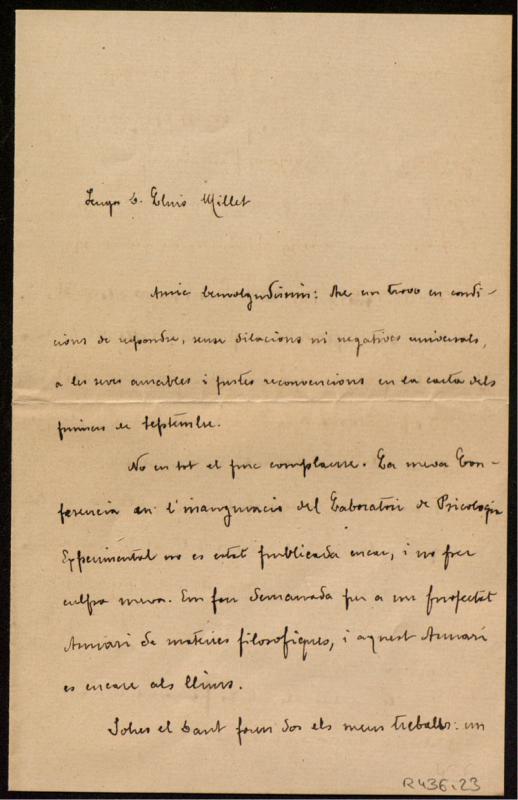 Senyor D. Lluís Millet
Amic benvolgudíssim: Are em trovo en condi-
cions de repondre, sense dilacions ni negatives universals,
a les seves amables i justes reconvencions en la carta dels
primers de Septembre.
No en tot el puc complaure. La meva Con-
ferencia en l'inauguració del Laboratori de Psicologia
Experimental no es estat publicada encar, i no per
culpa meva. Em fou demanada per a un projectat
Anuari de materies filosofiques, i aquest Anuari
es encare als llims.
Sobre el Cant foren dos els meus treballs: un
R436.23